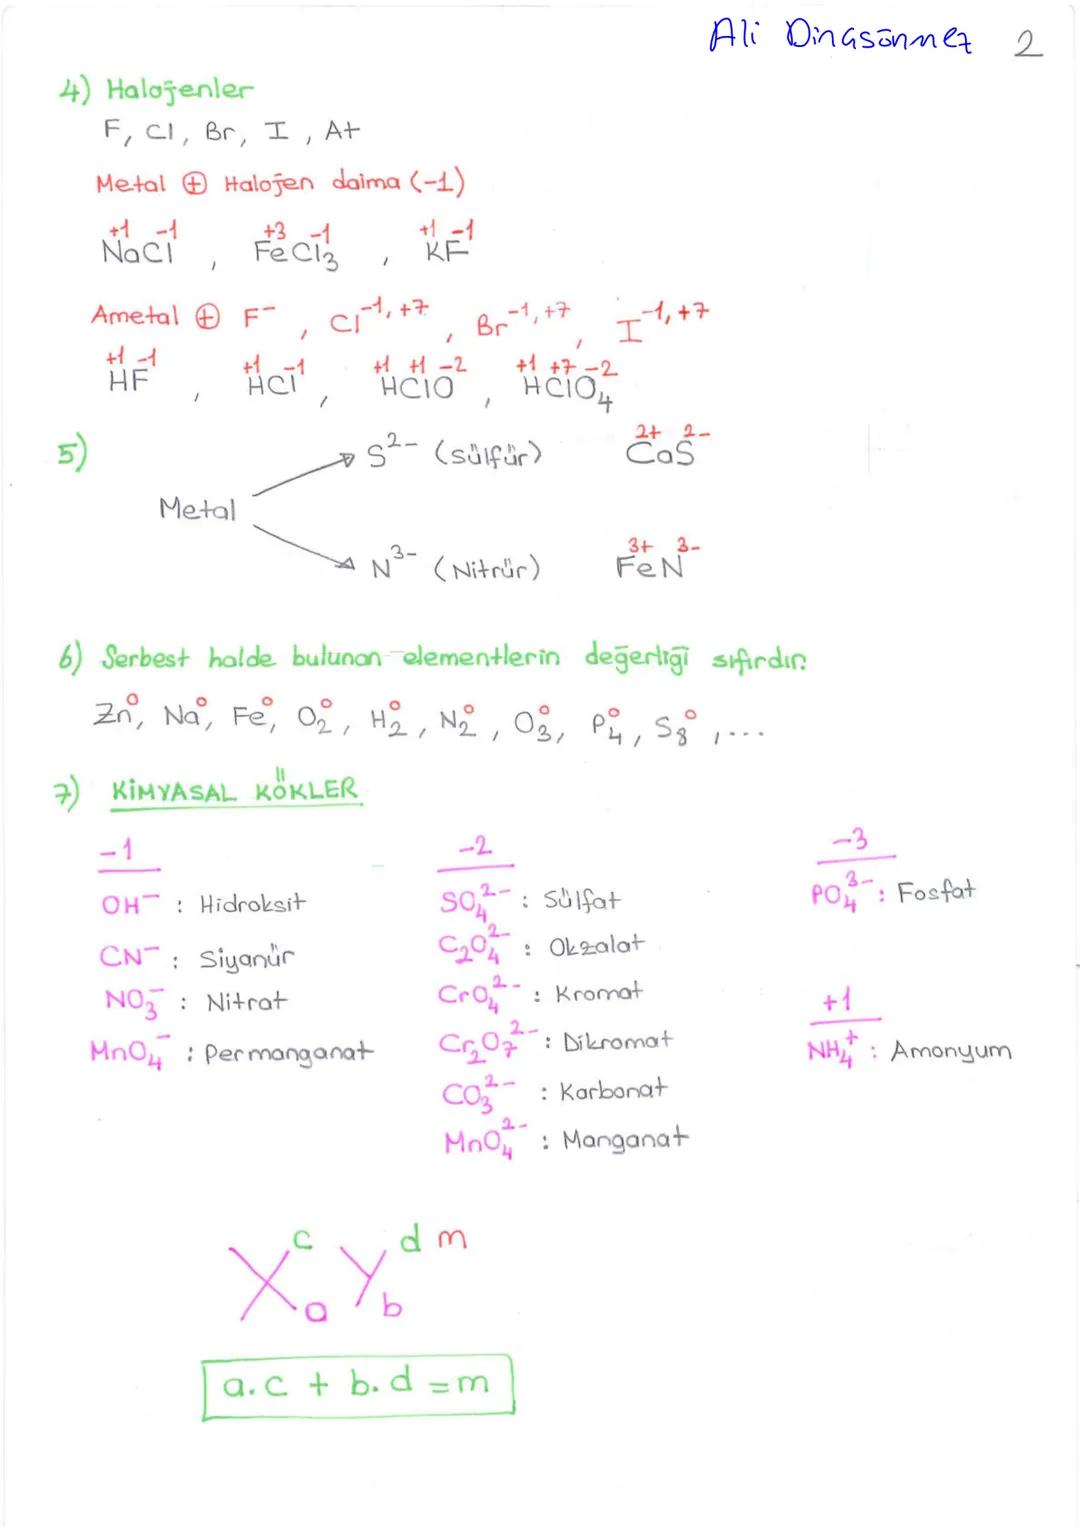 Ali Dinasönmez 2
4) Halojenler
F, Cl, Br, I, At
Metal ⊕ Halojen daima (-1)
+1 -1 +3 -1 +1 -1
NaCl, FeCl₃, KF
Ametal ⊕ F⁻, Cl⁻¹,⁺⁷, Br⁻¹,⁺⁷, I⁻¹,⁺⁷
+1 -1 +1 -1 +1 +1 -2 +1 +7 -2
HF, HCl, HClO, HClO₄
5)
S²⁻ (sülfür) 2+ 2- CaS
Metal
N³⁻ (Nitrür) 3+ 3- FeN
6) Serbest halde bulunan elementlerin değerliği sıfırdır.
Zn⁰, Na⁰, Fe⁰, O₂⁰, H₂⁰, N₂⁰, O₃⁰, P₄⁰, S₈⁰, ...
7) KİMYASAL KÖKLER
-1
OH⁻ : Hidroksit
CN⁻ : Siyanür
NO₃⁻ : Nitrat
MnO₄⁻ : Permanganat
-2
SO₄²⁻ : Sülfat
C₂O₄²⁻ : Okzalat
CrO₄²⁻ : Kromat
Cr₂O₇²⁻ : Dikromat
CO₃²⁻ : Karbonat
MnO₄²⁻ : Manganat
-3
PO₄³⁻ : Fosfat
+1
NH₄⁺ : Amonyum
c d m
X Y
a b
a.c + b.d = m